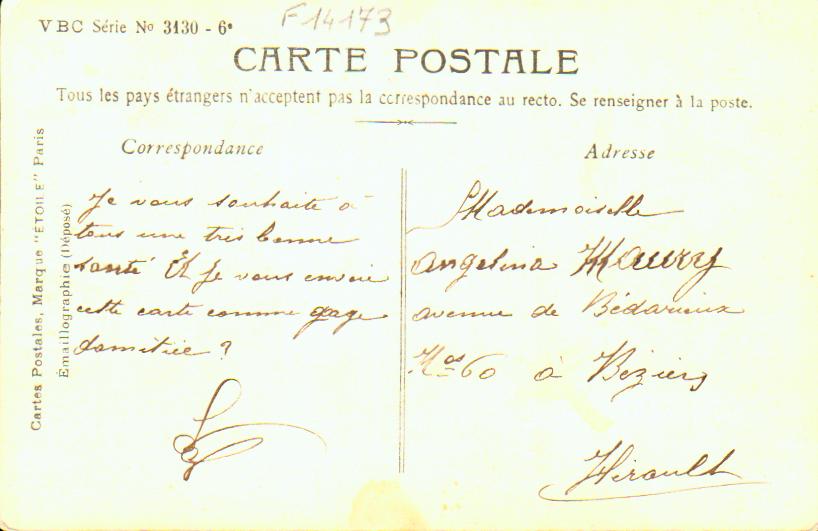 F14173
VBC Série No 3130 - 6e
CARTE POSTALE
Tous les pays étrangers n'acceptent pas la correspondance au recto. Se renseigner à la poste.
Correspondance
Je vous souhaite à
tous une tres bonne
santé Et Je vous envoie
cette carte comme gage
damitiee ?
Adresse
Mademoiselle
Angelina Maury
avenue de Bédarieux
Nos 60 à Beziers
Hérault
Cartes Postales, Marque "ÉTOILE" Paris
Émaillographie (Déposé)